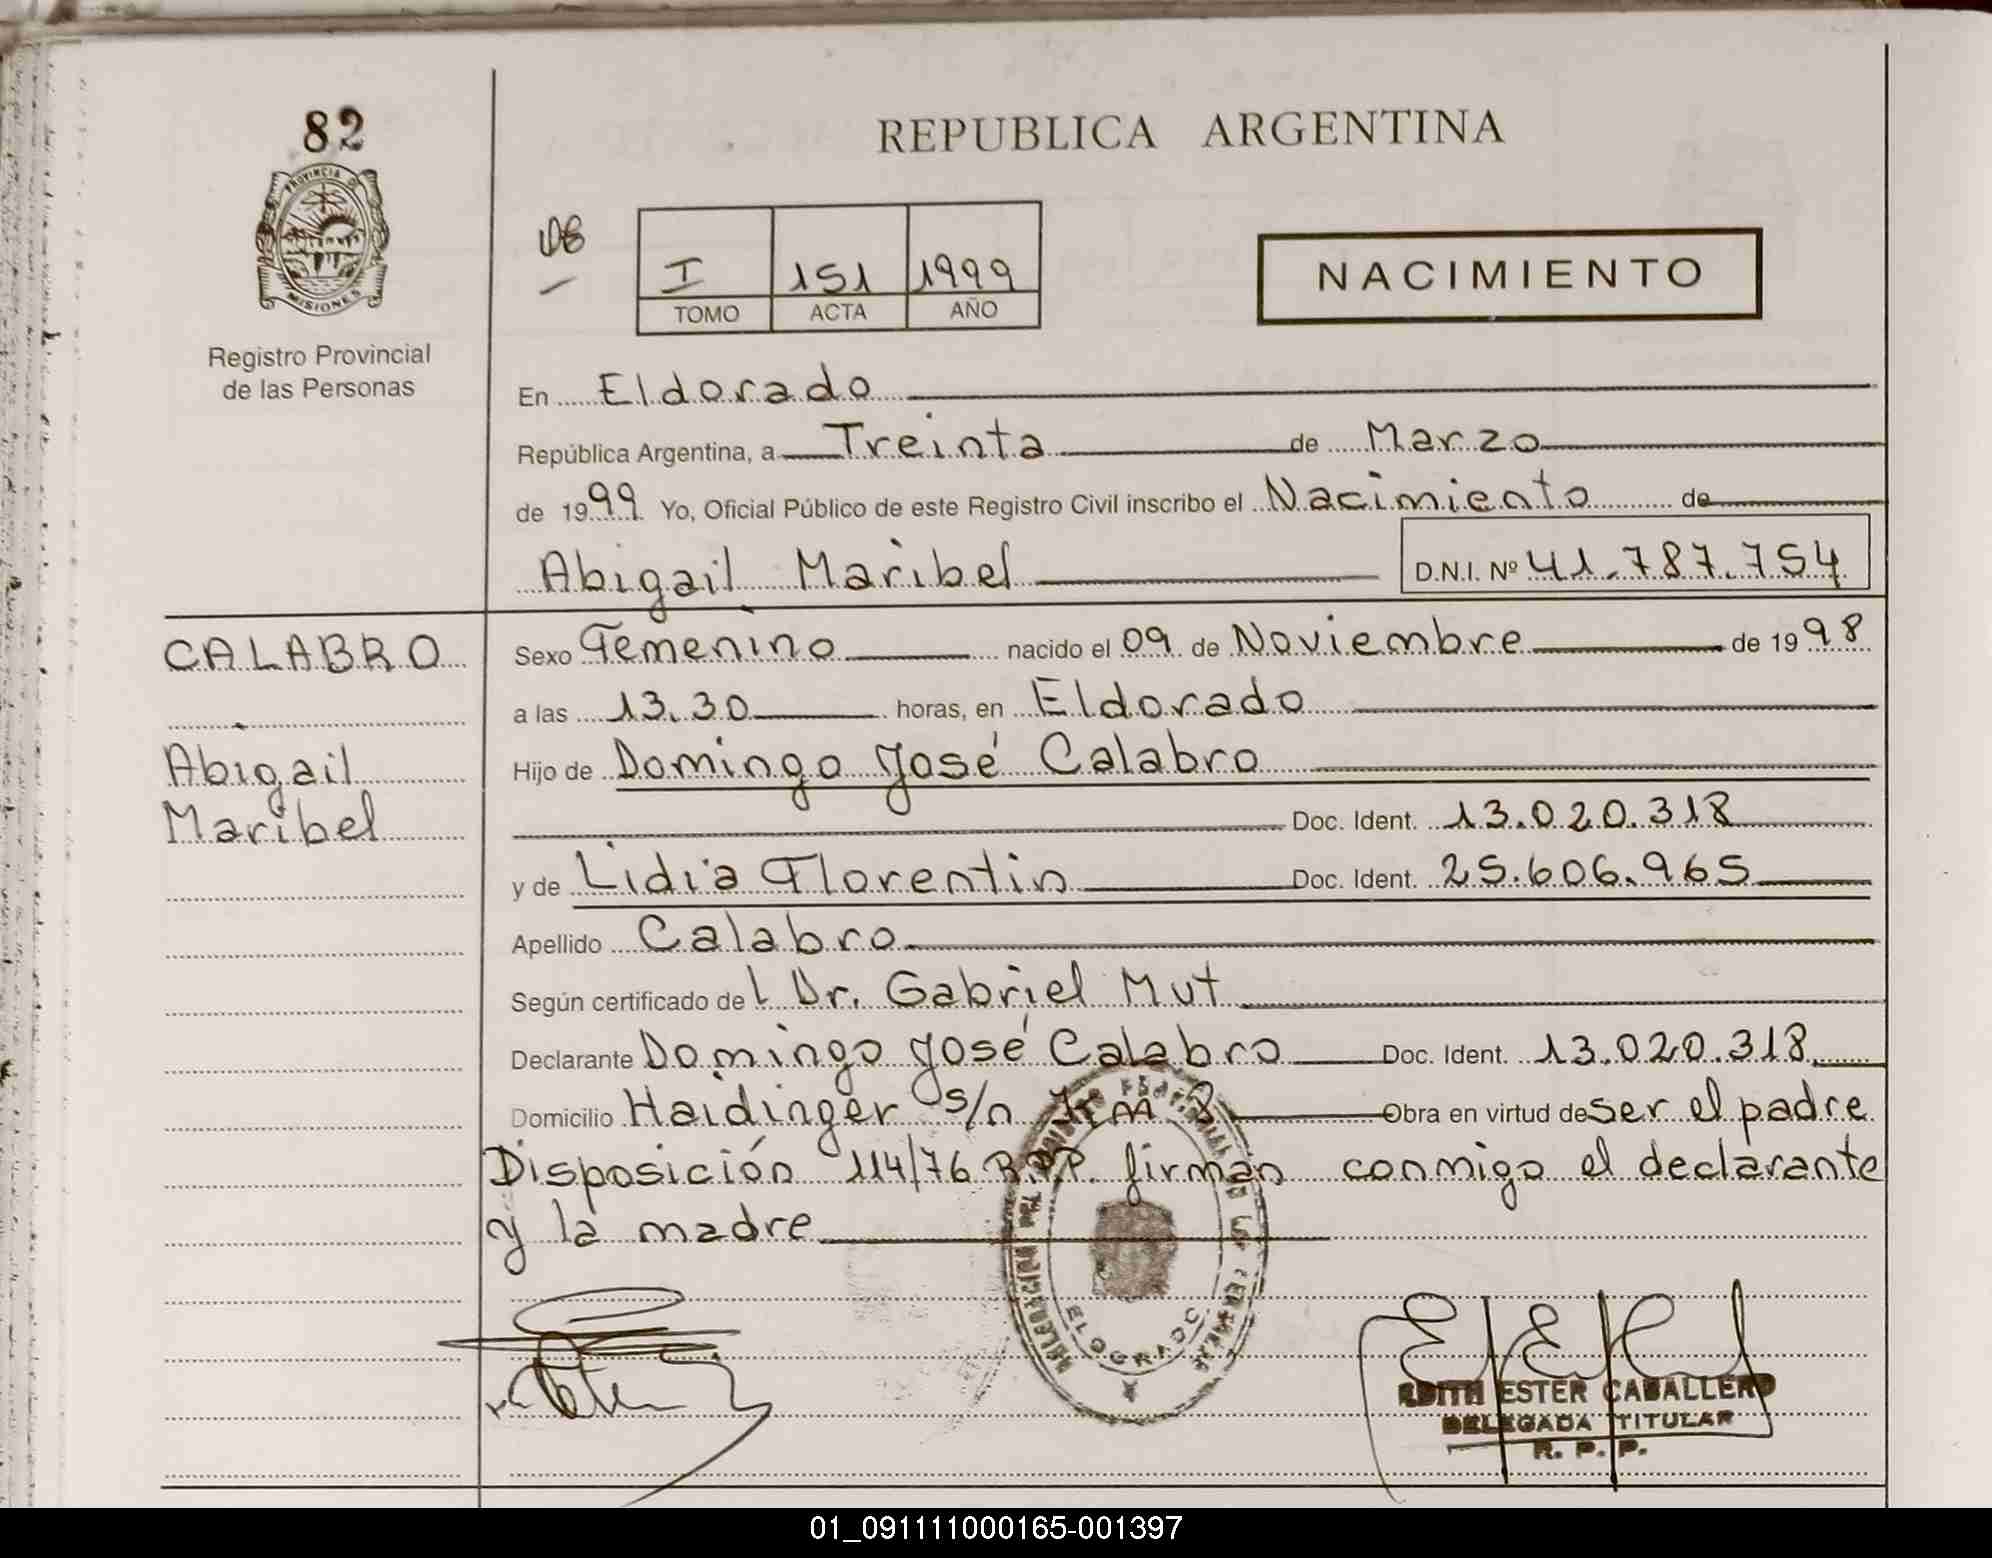 82
REPUBLICA ARGENTINA
PROVINCIA DE
MISIONES
Registro Provincial
de las Personas
I 151 1999
TOMO ACTA AÑO
NACIMIENTO
En Eldorado
República Argentina, a Treinta de Marzo
de 1999 Yo, Oficial Público de este Registro Civil inscribo el Nacimiento de
Abigail Maribel D.N.I. Nº 41.787.754
CALABRO
Abigail
Maribel
Sexo Femenino nacido el 09 de Noviembre de 1998
a las 13.30 horas, en Eldorado
Hijo de Domingo José Calabro
Doc. Ident. 13.020.318
y de Lidia Florentin Doc. Ident. 25.606.965
Apellido Calabro
Según certificado del Dr. Gabriel Mut
Declarante Domingo José Calabro Doc. Ident. 13.020.318
Domicilio Haidinger s/n Km 8 Obra en virtud de ser el padre
Disposición 114/76 R.P.P. firman conmigo el declarante
y la madre
ELDORADO
EDITH ESTER CABALLERO
DELEGADA TITULAR
R. P. P.
01_091111000165-001397